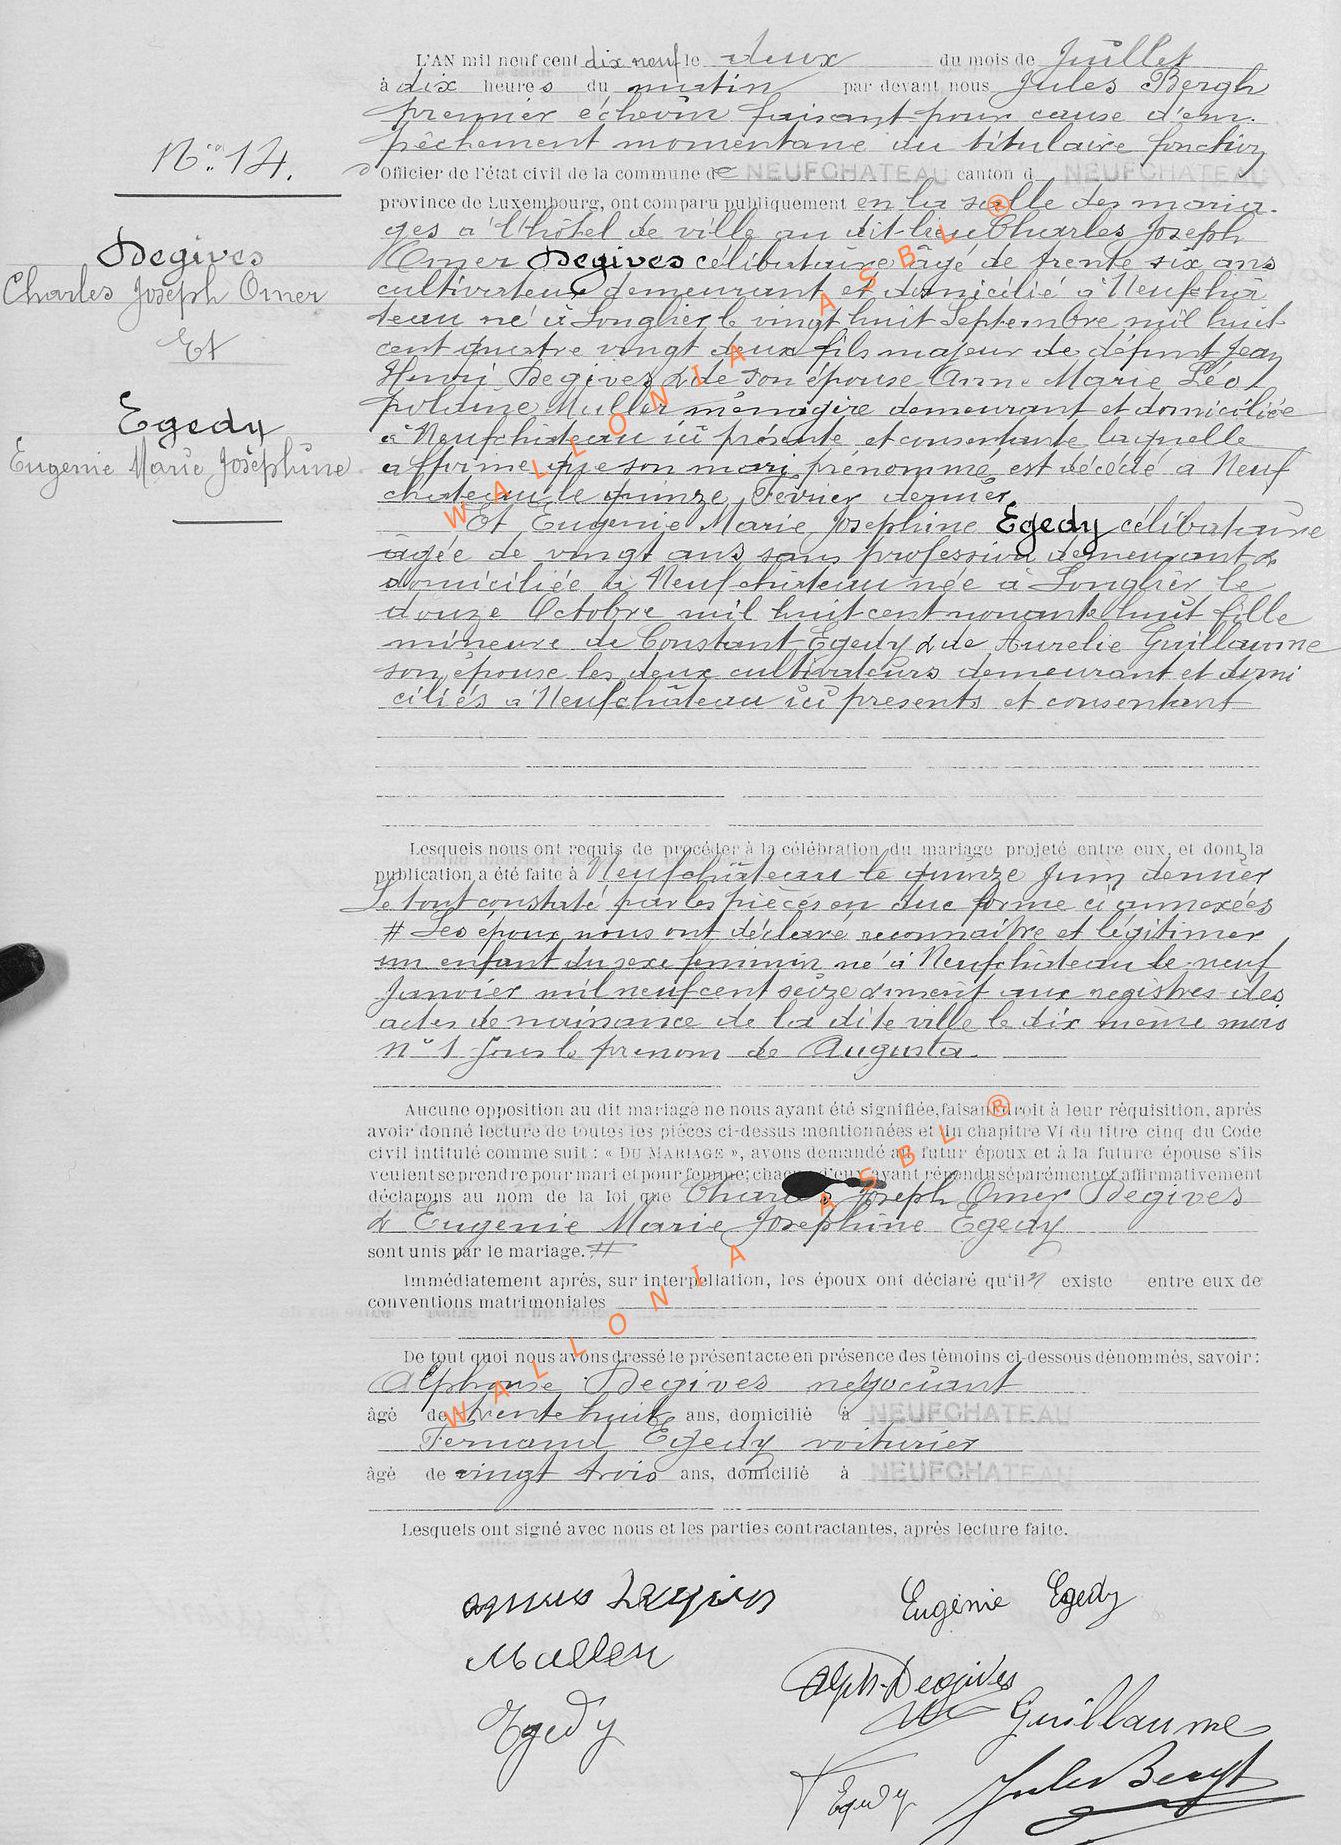 N° 14.
Degives
Charles Joseph Omer
Et
Egedy
Eugenie Marie Joséphine
L'AN mil neuf cent dix neuf le deux du mois de Juillet
à dix heures du matin par devant nous Jules Bergh
premier échevin faisant pour cause d'em-
pêchement momentané du titulaire fonction
d'Officier de l'état civil de la commune de NEUFCHATEAU canton d NEUFCHATEAU
province de Luxembourg, ont comparu publiquement en la salle des maria-
ges à l'hôtel de ville au dit-lieu Charles Joseph
Omer Degives célibataire âgé de trente six ans
cultivateur demeurant et domicilié à Neufchâ
teau né à Longlier le vingt huit Septembre mil huit
cent quatre vingt deux fils majeur de défunt Jean
Henri Degives & de son épouse Anne Marie Léo
poldine Muller ménagère demeurant et domiciliée
à Neufchâteau ici présente et consentante laquelle
affirme que son mari prénommé est décédé à Neuf
chateau le quinze Février dernier
Et Eugenie Marie Josephine Egedy célibataire
âgée de vingt ans sans profession demeurant &
domiciliée à Neufchâteau née à Longlier le
douze Octobre mil huit cent nonante huit fille
mineure de Constant Egedy & de Aurelie Guillaume
son épouse les deux cultivateurs demeurant et domi
ciliés à Neufchâteau ici présents et consentant
Lesquels nous ont requis de procéder à la célébration du mariage projeté entre eux, et dont la
publication a été faite à Neufchâteau le quinze Juin dernier
Le tout constaté par les pièces en due forme ci annexées
# Les époux nous ont déclaré reconnaître et légitimer
un enfant du sexe feminin né à Neufchâteau le neuf
Janvier mil neuf cent seize & inscrit aux registres des
actes de naissance de la dite ville le dix même mois
n° 1 sous le prenom de Augusta.
Aucune opposition au dit mariage ne nous ayant été signifiée, faisant droit à leur réquisition, après
avoir donné lecture de toutes les pièces ci-dessus mentionnées et du chapitre VI du titre cinq du Code
civil intitulé comme suit : « DU MARIAGE », avons demandé au futur époux et à la future épouse s'ils
veulent se prendre pour mari et pour femme; chacun d'eux ayant répondu séparément et affirmativement
déclarons au nom de la loi que Charles Joseph Omer Degives
& Eugenie Marie Josephine Egedy
sont unis par le mariage. #
Immédiatement après, sur interpellation, les époux ont déclaré qu'il n existe entre eux de
conventions matrimoniales
De tout quoi nous avons dressé le présent acte en présence des témoins ci-dessous dénommés, savoir :
Alphonse Degives négociant
âgé de trente huit ans, domicilié à NEUFCHATEAU
Fernand Egedy voiturier
âgé de vingt trois ans, domicilié à NEUFCHATEAU
Lesquels ont signé avec nous et les parties contractantes, après lecture faite.
Degives Eugénie Egedy
Muller
Alph. Degives
Egedy Guillaume
F Egedy Jules Bergh
WALLONIA ASBL ®
WALLONIA ASBL ®